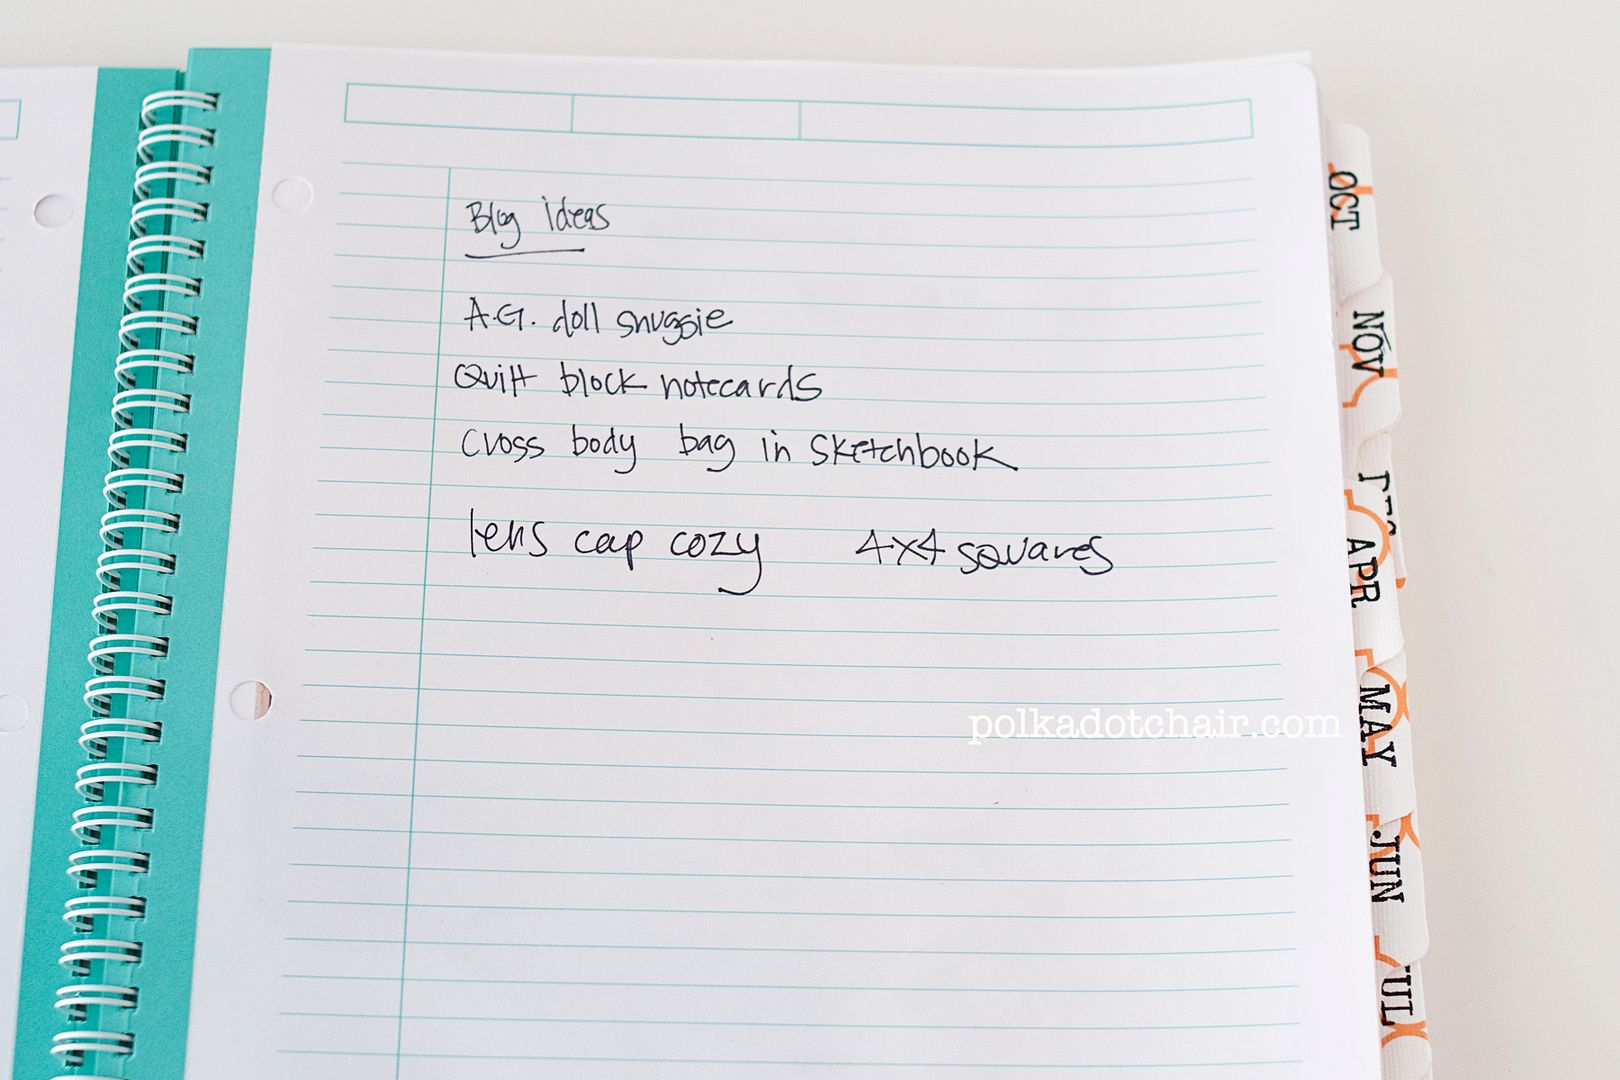 Blog ideas
A.G. doll snuggie
Quilt block notecards
Cross body bag in Sketchbook
lens cap cozy 4x4 squares
polkadotchair.com
OCT
NOV
DEC
APR
MAY
JUN
JUL